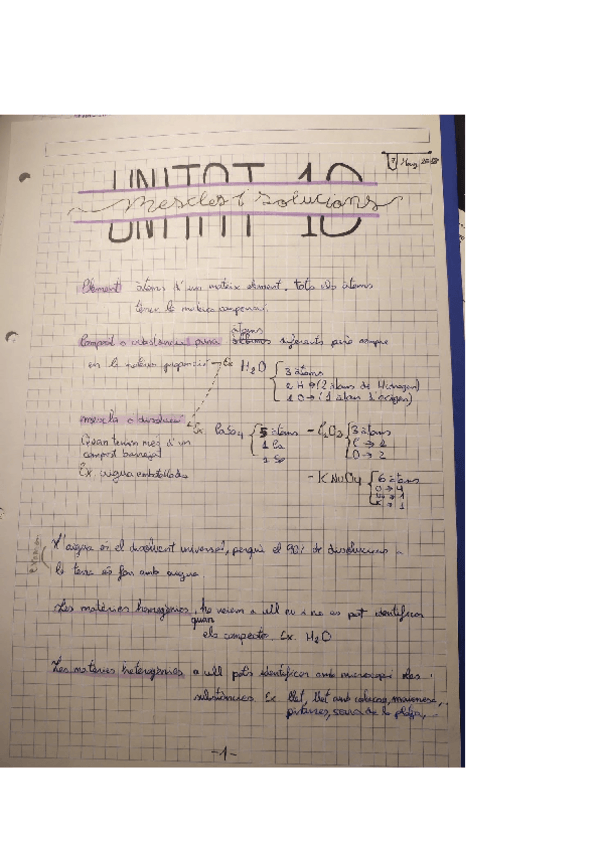 UNITAT 10
Mescles i solucions
Element àtoms d'un mateix element, tots els àtoms
tenen la mateixa
Compost o substància pura àtoms diferents però sempre
en la mateixa proporció → Ex H2O
3 àtoms
2 H → (2 àtoms de Hidrogen)
1 O → (1 àtom d'oxigen)
mescla o dissolució
Ex.
5 àtoms
3 àtoms
C → 2
O → 2
Quan tenim més d'un
compost barrejat
Ex. aigua embotellada
6 àtoms
O → 4
→ 1
→ 1
L'aigua és el dissolvent universal, perquè el 90% de dissolucions a
la terra es fan amb aigua.
Les matèries homogènies, ho veiem a ull nu i no es pot identificar
quan
els components Ex. H2O
Les matèries heterogènies a ull pots identificar amb microscopi les
substàncies Ex llet, llet amb colacao, maionesa,
pintures, sorra de la platja, ...
-1-